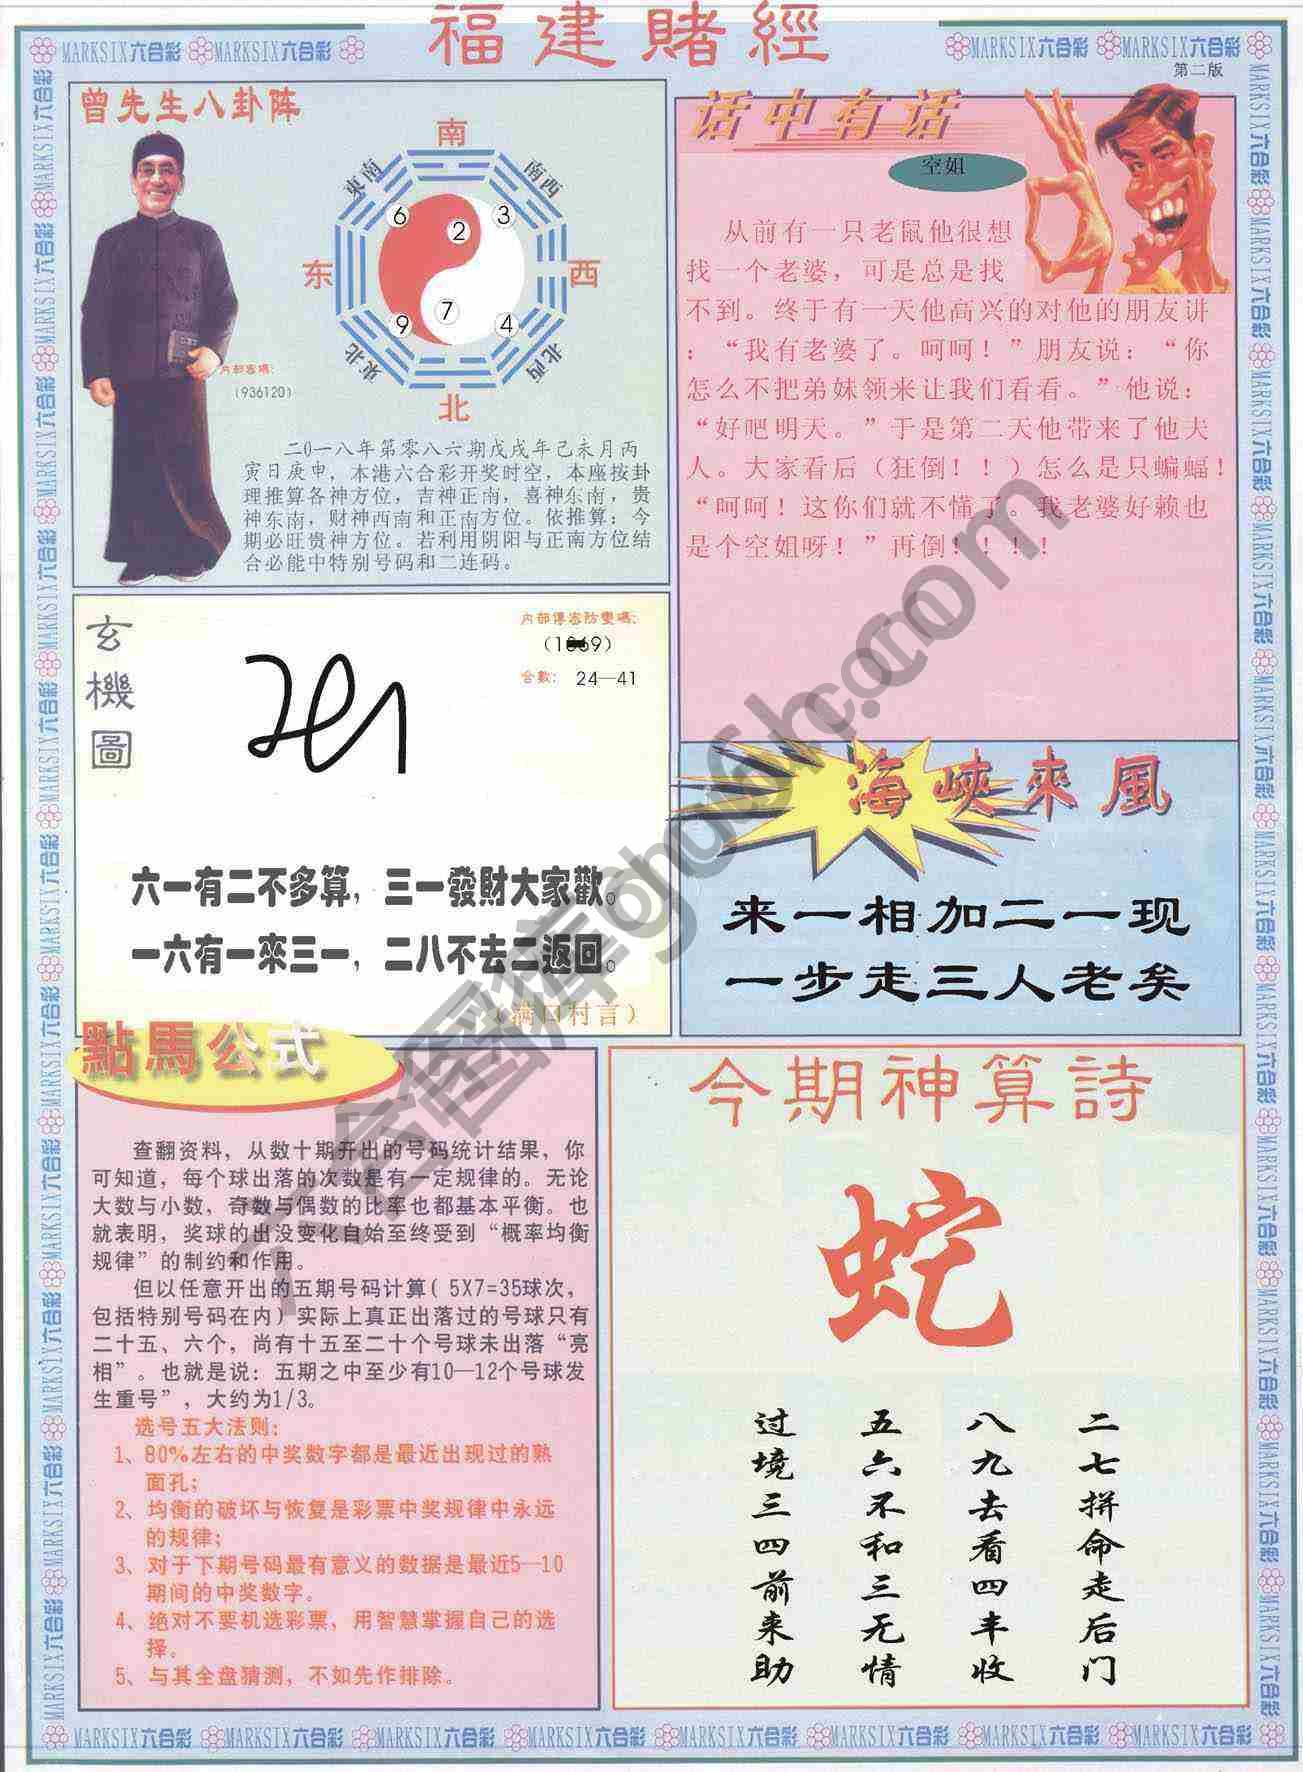 福建賭經
MARKSIX六合彩 MARKSIX六合彩
MARKSIX六合彩 MARKSIX六合彩
第二版
曾先生八卦阵
南
東南
南西
6
2
3
东
西
7
9
4
東北
北西
北
内部密碼:
(936120)
二0一八年第零八六期戊戌年己未月丙
寅日庚申，本港六合彩开奖时空，本座按卦
理推算各神方位，吉神正南，喜神东南，贵
神东南，财神西南和正南方位。依推算：今
期必旺贵神方位。若利用阴阳与正南方位结
合必能中特别号码和二连码。
话中有话
空姐
从前有一只老鼠他很想
找一个老婆，可是总是找
不到。终于有一天他高兴的对他的朋友讲
：“我有老婆了。呵呵！”朋友说：“你
怎么不把弟妹领来让我们看看。”他说：
“好吧明天。”于是第二天他带来了他夫
人。大家看后（狂倒！！）怎么是只蝙蝠！
“呵呵！这你们就不懂了。我老婆好赖也
是个空姐呀！”再倒！！！！
玄機圖
内部傳密防變碼:
合數: 24—41
六一有二不多算，三一發財大家歡。
一六有一來三一，二八不去二返回。
（满口村言）
海峽來風
来一相加二一现
一步走三人老矣
點馬公式
查翻资料，从数十期开出的号码统计结果，你
可知道，每个球出落的次数是有一定规律的。无论
大数与小数，奇数与偶数的比率也都基本平衡。也
就表明，奖球的出没变化自始至终受到“概率均衡
规律”的制约和作用。
但以任意开出的五期号码计算( 5X7=35球次，
包括特别号码在内)实际上真正出落过的号球只有
二十五、六个，尚有十五至二十个号球未出落“亮
相”。也就是说：五期之中至少有10—12个号球发
生重号”，大约为1/3。
选号五大法则:
1、80%左右的中奖数字都是最近出现过的熟
面孔;
2、均衡的破坏与恢复是彩票中奖规律中永远
的规律;
3、对于下期号码最有意义的数据是最近5—10
期间的中奖数字。
4、绝对不要机选彩票，用智慧掌握自己的选
择。
5、与其全盘猜测，不如先作排除。
今期神算詩
蛇
二七拼命走后门
八九去看四丰收
五六不和三无情
过境三四前来助
MARKSIX六合彩 MARKSIX六合彩 MARKSIX六合彩 MARKSIX六合彩 MARKSIX六合彩 MARKSIX六合彩 MARKSIX六合彩 MARKSIX六合彩